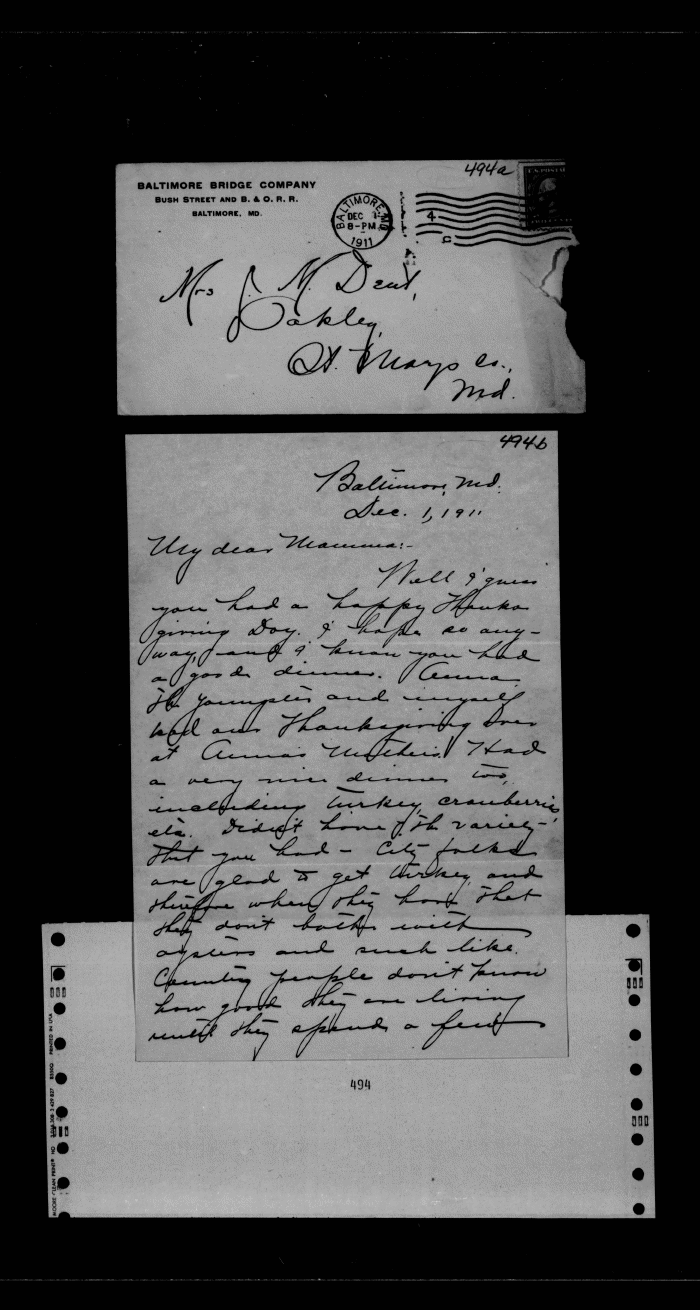 494a
BALTIMORE BRIDGE COMPANY
BUSH STREET AND B. & O. R. R.
BALTIMORE, MD.
BALTIMORE, MD.
DEC 1
8-PM
1911
4
D
U.S. POSTAGE
Mrs J. M. Dent,
Oakley,
St. Marys Co.,
Md.
494b
Baltimore, Md.
Dec. 1, 1911
My dear Mamma:-
Well I guess
you had a happy Thanks
giving Day. I hope so any-
way, and I know you had
a good dinner. Anna
the youngster and myself
had our Thanksgiving over
at Anna's Mother's. Had
a very nice dinner too,
including turkey, cranberries,
etc. Didn't have the variety
that you had - City folks
are glad to get turkey and
therefore when they have that
they don't bother with
oysters and such like.
Country people don't know
how good they are living
until they spend a few
494
PRINTED IN U.S.A.
MOORE CLEAN PRINT